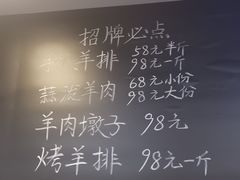 招牌必点
羊排 58元半斤
98元一斤
蒜泼羊肉 68元小份
98元大份
羊肉墩子 98元
烤羊排 98元一斤